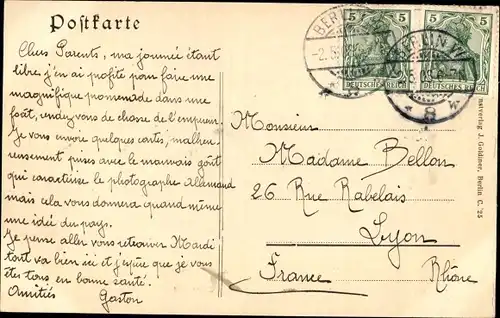 Postkarte
Chers Parents, ma journée étant
libre, j'en ai profité pour faire une
magnifique promenade dans une
forêt, rendez-vous de chasse de l'empereur.
Je vous envoie quelques cartes, malheu-
reusement prises avec le mauvais goût
qui caractérise le photographe Allemand
mais cela vous donnera quand même
une idée du pays.
Je pense aller vous retrouver Mardi
tout va bien ici et j'espère que je vous
êtes tous en bonne santé.
Amitiés Gaston
BERLIN
5 5
DEUTSCHES REICH
5 5
DEUTSCHES REICH
BERLIN W
* 8 *
Monsieur
Madame Bellon
26 Rue Rabelais
Lyon
France Rhône
Kunstverlag J. Goldiner, Berlin C. 25